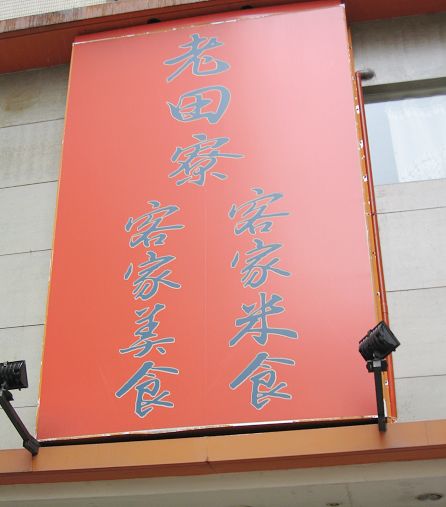 老田寮
客家米食
客家美食